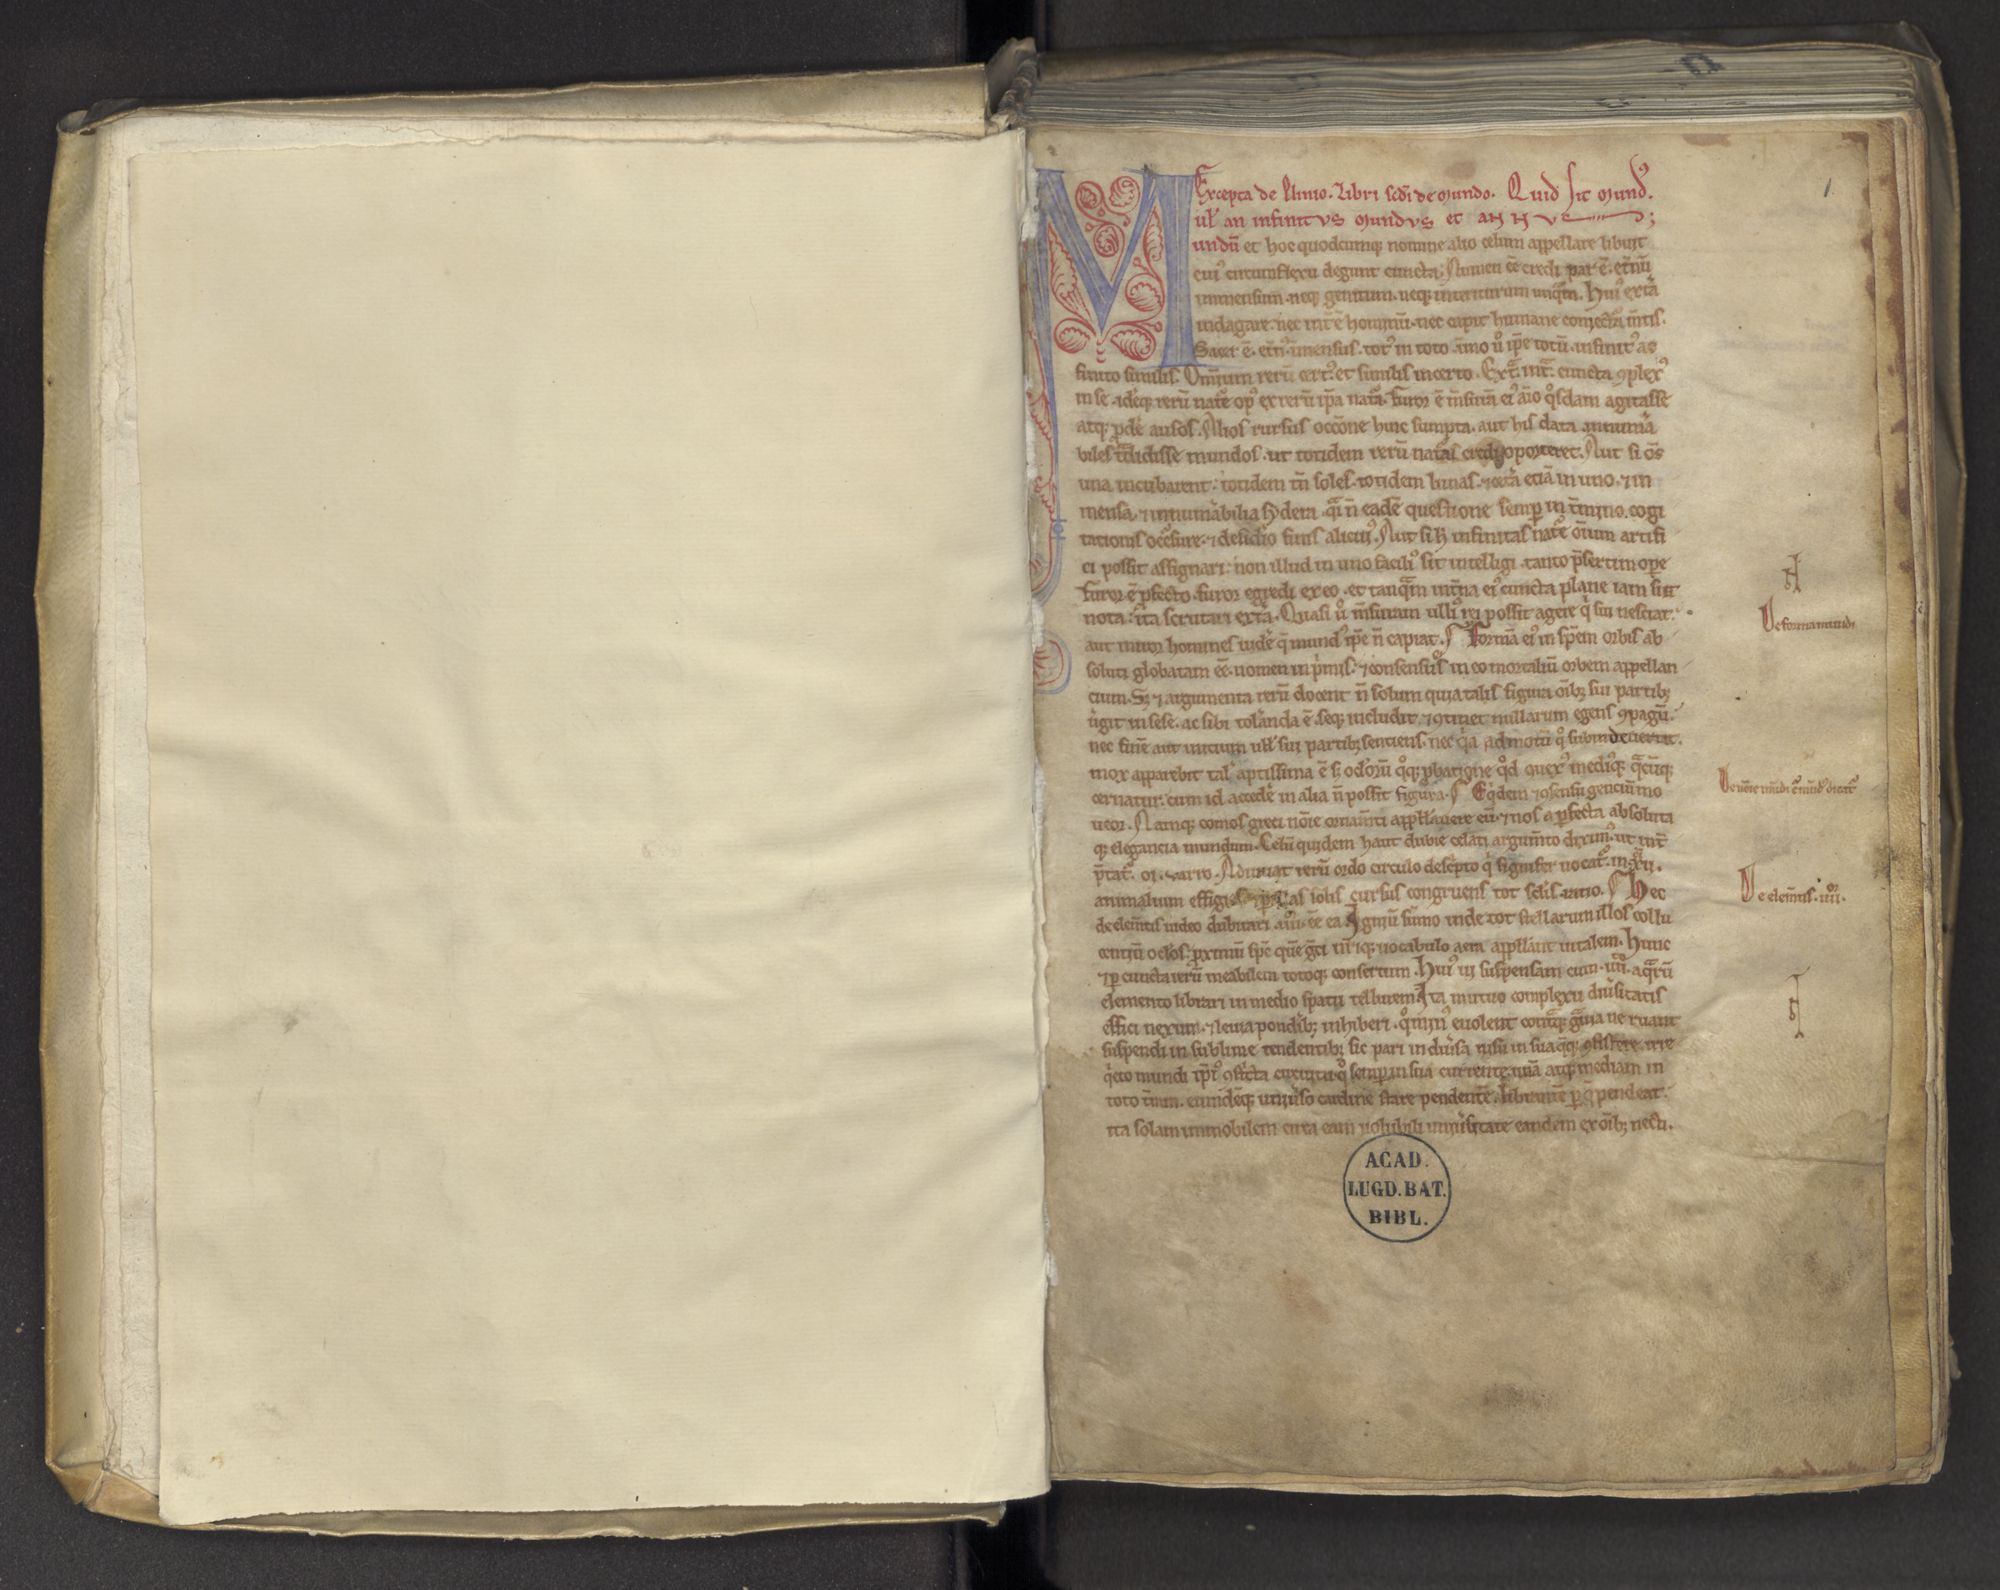 Excepta de Plinio. Libri scdi de mundo. Quid sit mundꝰ.
uł an infinitvs mundvs et annve;
Mundū et hoc quodcumqꝫ nomine alio celum appellare libuit
cuiꝰ circumflexu degunt cuncta; Numen eē credi par ē. et̄nū
immensum. neqꝫ genitum. neqꝫ interiturum unqͣm. Huiꝰ ext̄a
indagare. nec int̄ē hominū. nec capit humane coniectā m̄tis.
Sacer ē. et̄nꝰ. īmensus. totꝰ in toto. īmo ů ip̄e totū. infinitꝰ ac
finito similis. Omnium rerū certꝰ. et similis incerto. Ext̄. int̄. cuncta ꝯplexꝰ
in se. idēqꝫ rerū nat̄e opꝰ ex rerū ip̄a nat̄a. Furor ē m̄suram eiꝰ aīo qͦsdam agitasse
atqꝫ ꝓdē ausos. Alios rursus occ̄one hinc sumpta. aut his data innumā
biles t̄didisse mundos. ut totidem rerū nat̄as credi oporteret. Aut si ōs
una incubarent. totidem t̄n soles. totidem lunas. ⁊ cet̄a etiā in uno. ⁊ in
mensa. ⁊ innumābilia sydera. qͣi n̄ eadē questione semꝑ in t̄mino. cogi
tationis occ̄sure. ⁊ desid̄io finis alicuiꝰ. Aut si h̄ infinitas nat̄e om̄ium artifi
ci possit assignari. non illud in uno faciliꝰ sit intelligi. tanto p̄sertim oꝑe
Furor ē ꝓfecto. furor egredi ex eo. et tanqͣm int̄na eiꝰ cuncta plane iam sint
nota. ita scrutari ext̄a. Quasi ů m̄suram ulliꝰ rei possit agere qͥ sui nesciat.
aut mens hominis uidē q̄ mundꝰ ip̄e n̄ capiat. Formā eiꝰ in sp̄em orbis ab
soluti globatam eē. nomen in p̄mis. ⁊ consensus in eo mortaliū orbem appellan
cium. Sꝫ ⁊ argumenta rerū docent n̄ solum quia talis figura om̄ibꝫ sui partibꝫ
u̇git in sese. ac sibi tol̄anda ē. seqꝫ includit. ⁊ ꝯtinet nullarum egens ꝯpagū.
nec finē aut initium ull̄ sui partibꝫ sentiens. nec qͥa ad motū qͦ subinde uertit.
mox apparebit tal̄ aptissima ē sꝫ oc̄lorū qͦqꝫ ꝓbatione qͦd
cernatur. cum id accedē in alia n̄ possit figura. Eqͥdem ⁊ ꝯsensu gentiū mo
ueor. Namqꝫ cosmos greci noīe ornam̄ti appłlauere eū. ⁊ nos a ꝑfecta absoluta
qꝫ elegancia mundum. Celū quidem haut dubie celati argum̄to diximꝰ. ut int̄
p̄tatꝰ. ḿ. varro. Adiuuat rerū ordo circulo desc̄pto qͥ signifer uocatꝰ. in xii.
animalium effigies. ⁊ ꝑ illas solis cursus congruens tot sc̄lis ratio. Nec
de elem̄tis uideo dubitari .iiiiͦʳ. eē ea Igniū sūmo inde tot stellarum illos collu
centiū oc̄los. proximū sp̄c quē ḡci nr̄iqꝫ uocabulo aera appłlant uitalem. Hunc
⁊ ꝑ cuncta rerū meabilem totoqꝫ consertum. Huiꝰ ui suspensam cum .iiiiͦ. aqͣrū
elemento librari in medio spatii tellurem. Ita mutuo complexu diūsitatis
effici nexum. ⁊ leuia pondībꝫ inhiberi. qͦminꝰ euolent contͣqꝫ gͣuia ne ruant
suspendi in sublime tendentibꝫ. sic pari in diūsa nisu in sua qͣqꝫ ꝯsistere irre
qͥeto mundi ip̄iꝰ ꝯst̄cta circuitu. qͦ semꝑ in sua currente. imā atqꝫ mediam in
toto t̄ram. eundēqꝫ uniūso cardine stare pendentē. librantē ꝑ q̄ pendeat.
ita solam immobilem circa eam uolubili uniūsitate eandem ex om̄ibꝫ necti.
1
De forma mundi
De noīe mūdi
De elem̄tis .iiiiͦʳ.
ACAD.
LUGD. BAT.
BIBL.